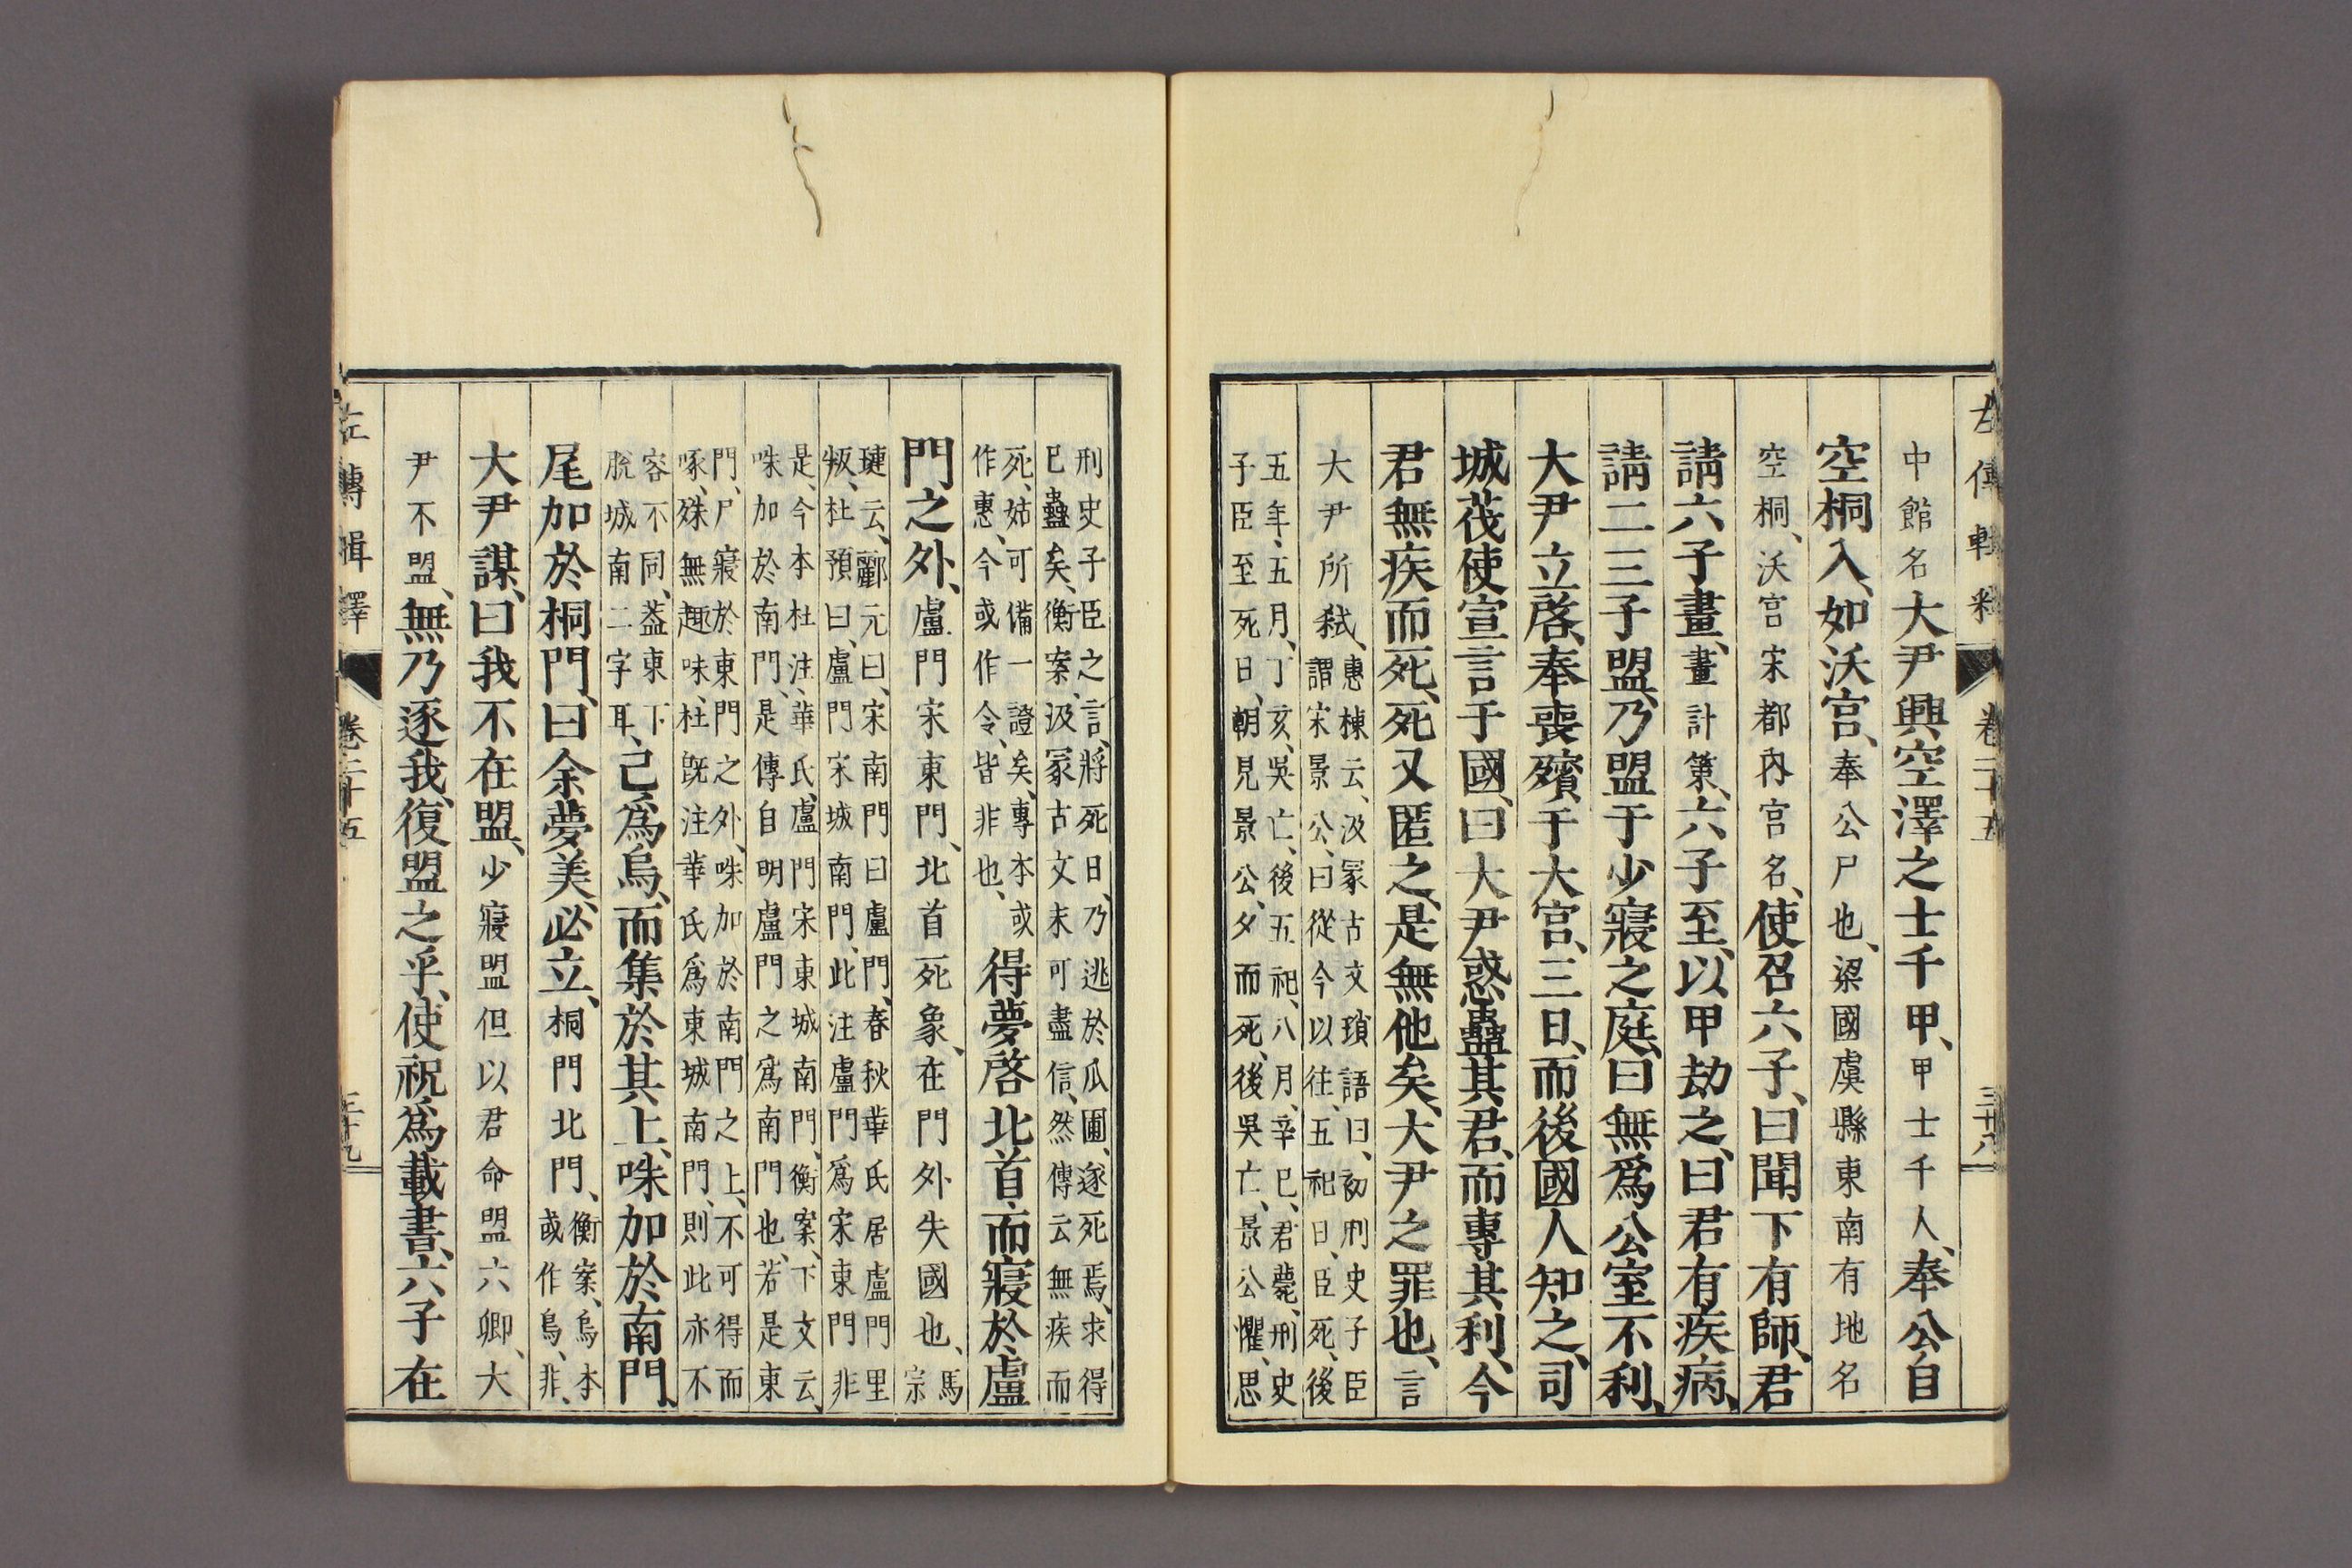 左傳輯釋 卷二十五 三十八
中館名大尹興空澤之士千甲、甲士千人、奉公自
空桐入、如沃宮、奉公尸也、梁國虞縣東南有地名
空桐、沃宮宋都內宮名、使召六子、曰聞下有師、君
請六子畫、畫計策、六子至、以甲劫之、曰君有疾病、
請二三子盟、乃盟于少寢之庭、曰無爲公室不利、
大尹立啓、奉喪殯于大宮、三日、而後國人知之、司
城茷使宣言于國、曰大尹惑蠱其君、而專其利、今
君無疾而死、死又匿之、是無他矣、大尹之罪也、言
大尹所弒、惠棟云、汲冢古文瑣語曰、初刑史子臣
謂宋景公、曰從今以往、五祀日、臣死、後
五年、五月、丁亥、吳亡、後五祀、八月、辛巳、君薨、刑史
子臣至死日、朝見景公、夕而死、後吳亡、景公懼、思
刑史子臣之言、將死日、乃逃於瓜圃、遂死焉、求得
已蠱矣、衡案、汲冢古文未可盡信、然傳云無疾而
死、姑可備一證矣、專本或
作惠、今或作令、皆非也、得夢啓北首、而寢於盧
門之外、盧門宋東門、北首死象、在門外失國也、馬
宗
璉云、酈元曰、宋南門曰盧門、春秋華氏居盧門里
叛、杜預曰、盧門宋城南門、此注盧門爲宋東門非
是、今本杜注、華氏、盧門宋東城南門、衡案、下文云、
咮加於南門、是傳自明盧門之爲南門也、若是東
門、尸寢於東門之外、咮加於南門之上、不可得而
啄、殊無趣味、杜旣注華氏爲東城南門、則此亦不
容不同、蓋東下
脫城南二字耳、己爲烏、而集於其上、咮加於南門、
尾加於桐門、曰余夢美、必立、桐門北門、衡案、烏本
或作鳥、非、
大尹謀、曰我不在盟、少寢盟但以君命盟六卿、大
尹不盟、無乃逐我、復盟之乎、使祝爲載書、六子在
左傳輯釋 卷二十五 三十九